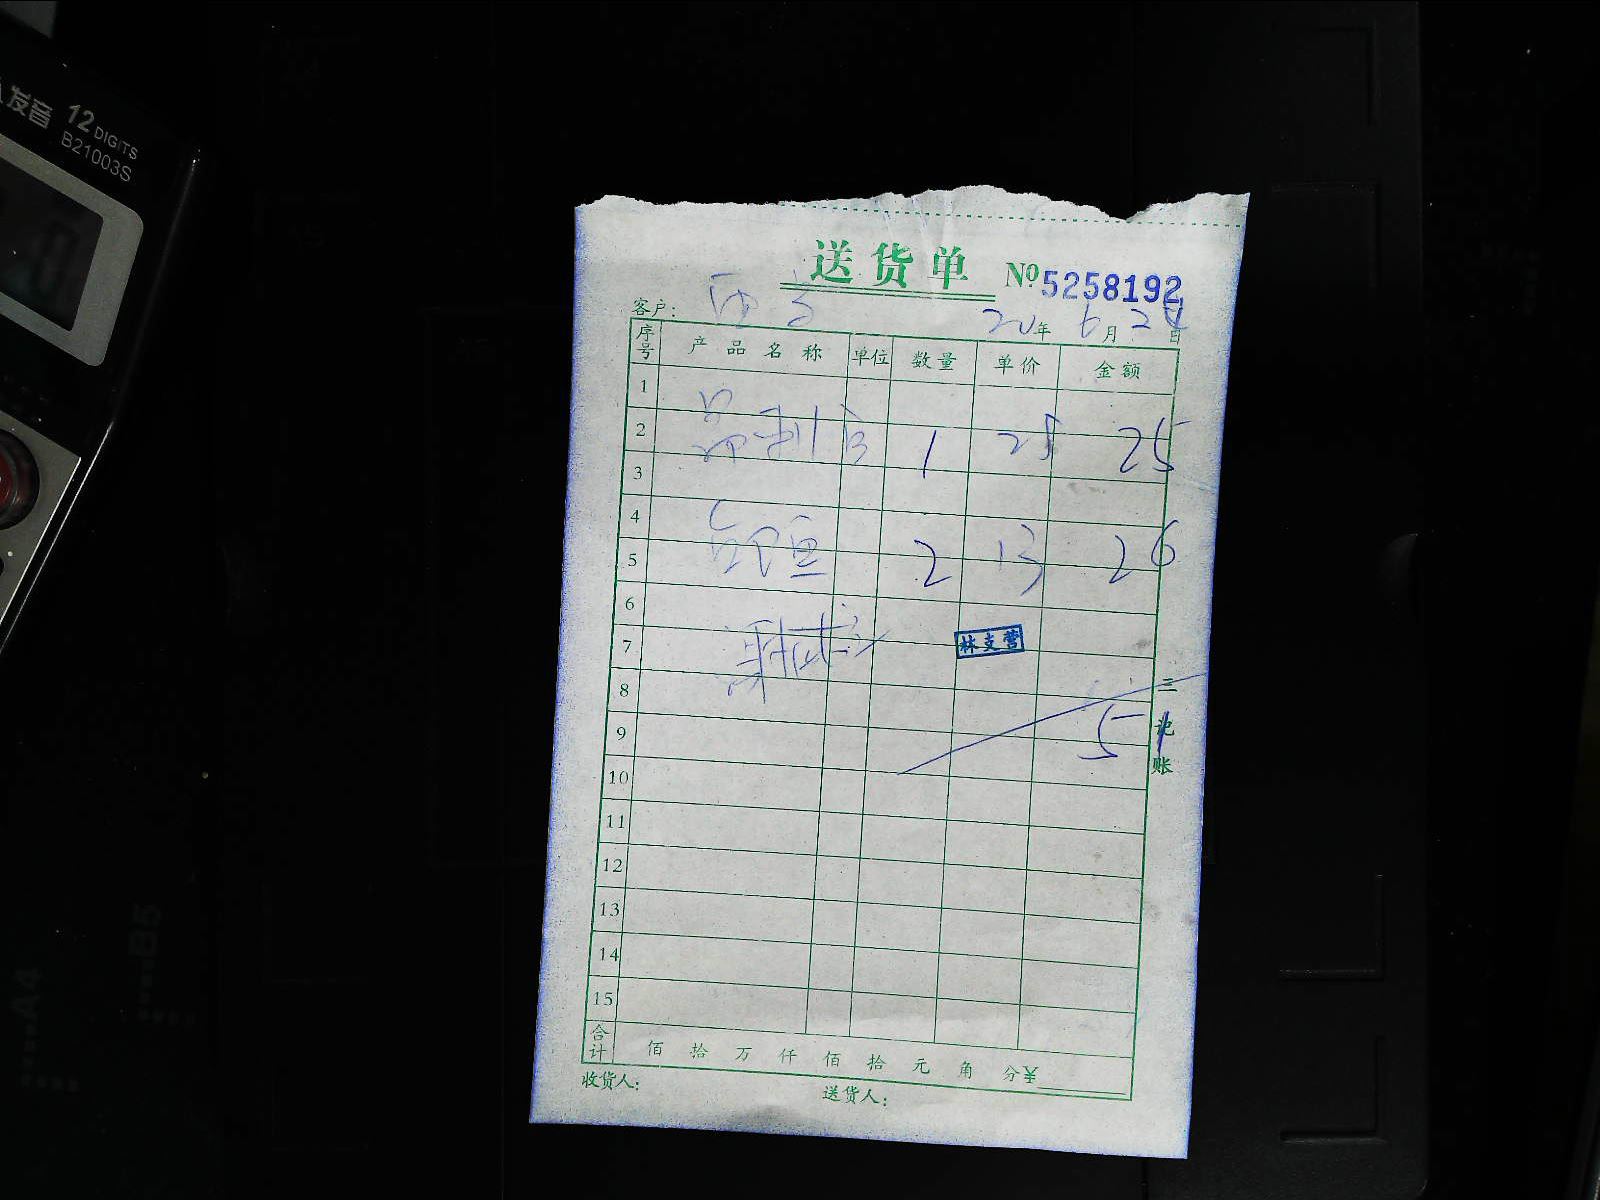 发音 12 DIGITS
B21003S
送货单 Nº 5258192
客户: 20年6月2日
序号 产品名称 单位 数量 单价 金额
1
2 1 25 25
3
4
5 鲍鱼 2 13 26
6
7 林支营
8
9 51
10
11
12
13
14
15
三记账
合计 佰 拾 万 仟 佰 拾 元 角 分¥
收货人: 送货人:
A4
B5